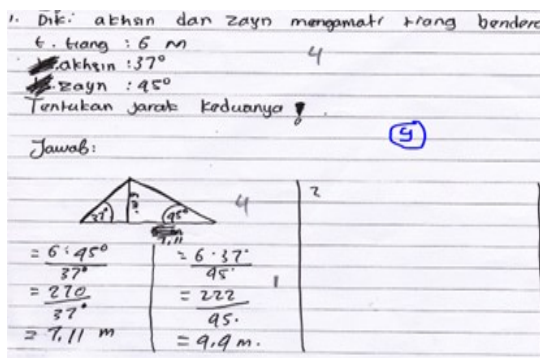 1. Dik: akhsin dan zayn mengamati tiang bendera
t. tiang : 6 m
4
akhsin : 37°
zayn : 45°
Tentukan jarak keduanya !
9
Jawab:
37° 6m 45°
4
7,11
2
= 6 : 45°
37°
= 270
37°
= 7,11 m
= 6 . 37°
45°
1
= 222
45.
= 4,9 m.